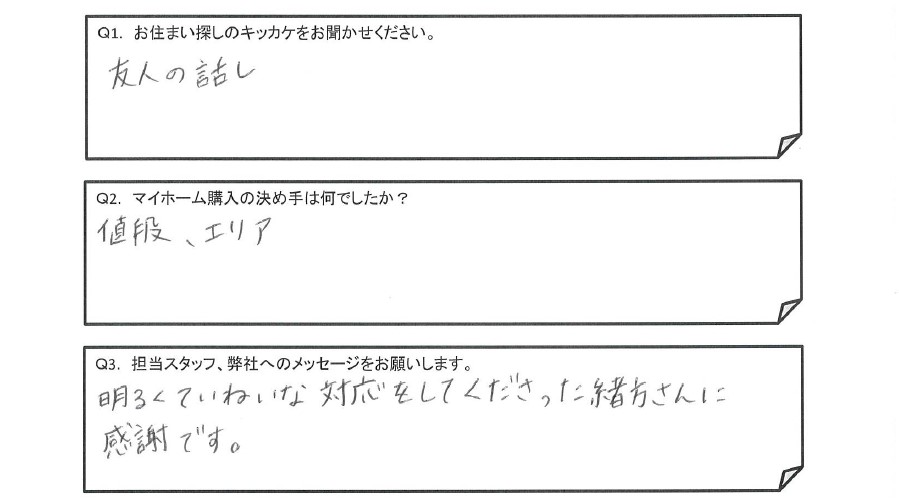 Q1. お住まい探しのキッカケをお聞かせください。
友人の話し
Q2. マイホーム購入の決め手は何でしたか？
値段、エリア
Q3. 担当スタッフ、弊社へのメッセージをお願いします。
明るくていねいな対応をしてくださった緒方さんに
感謝です。